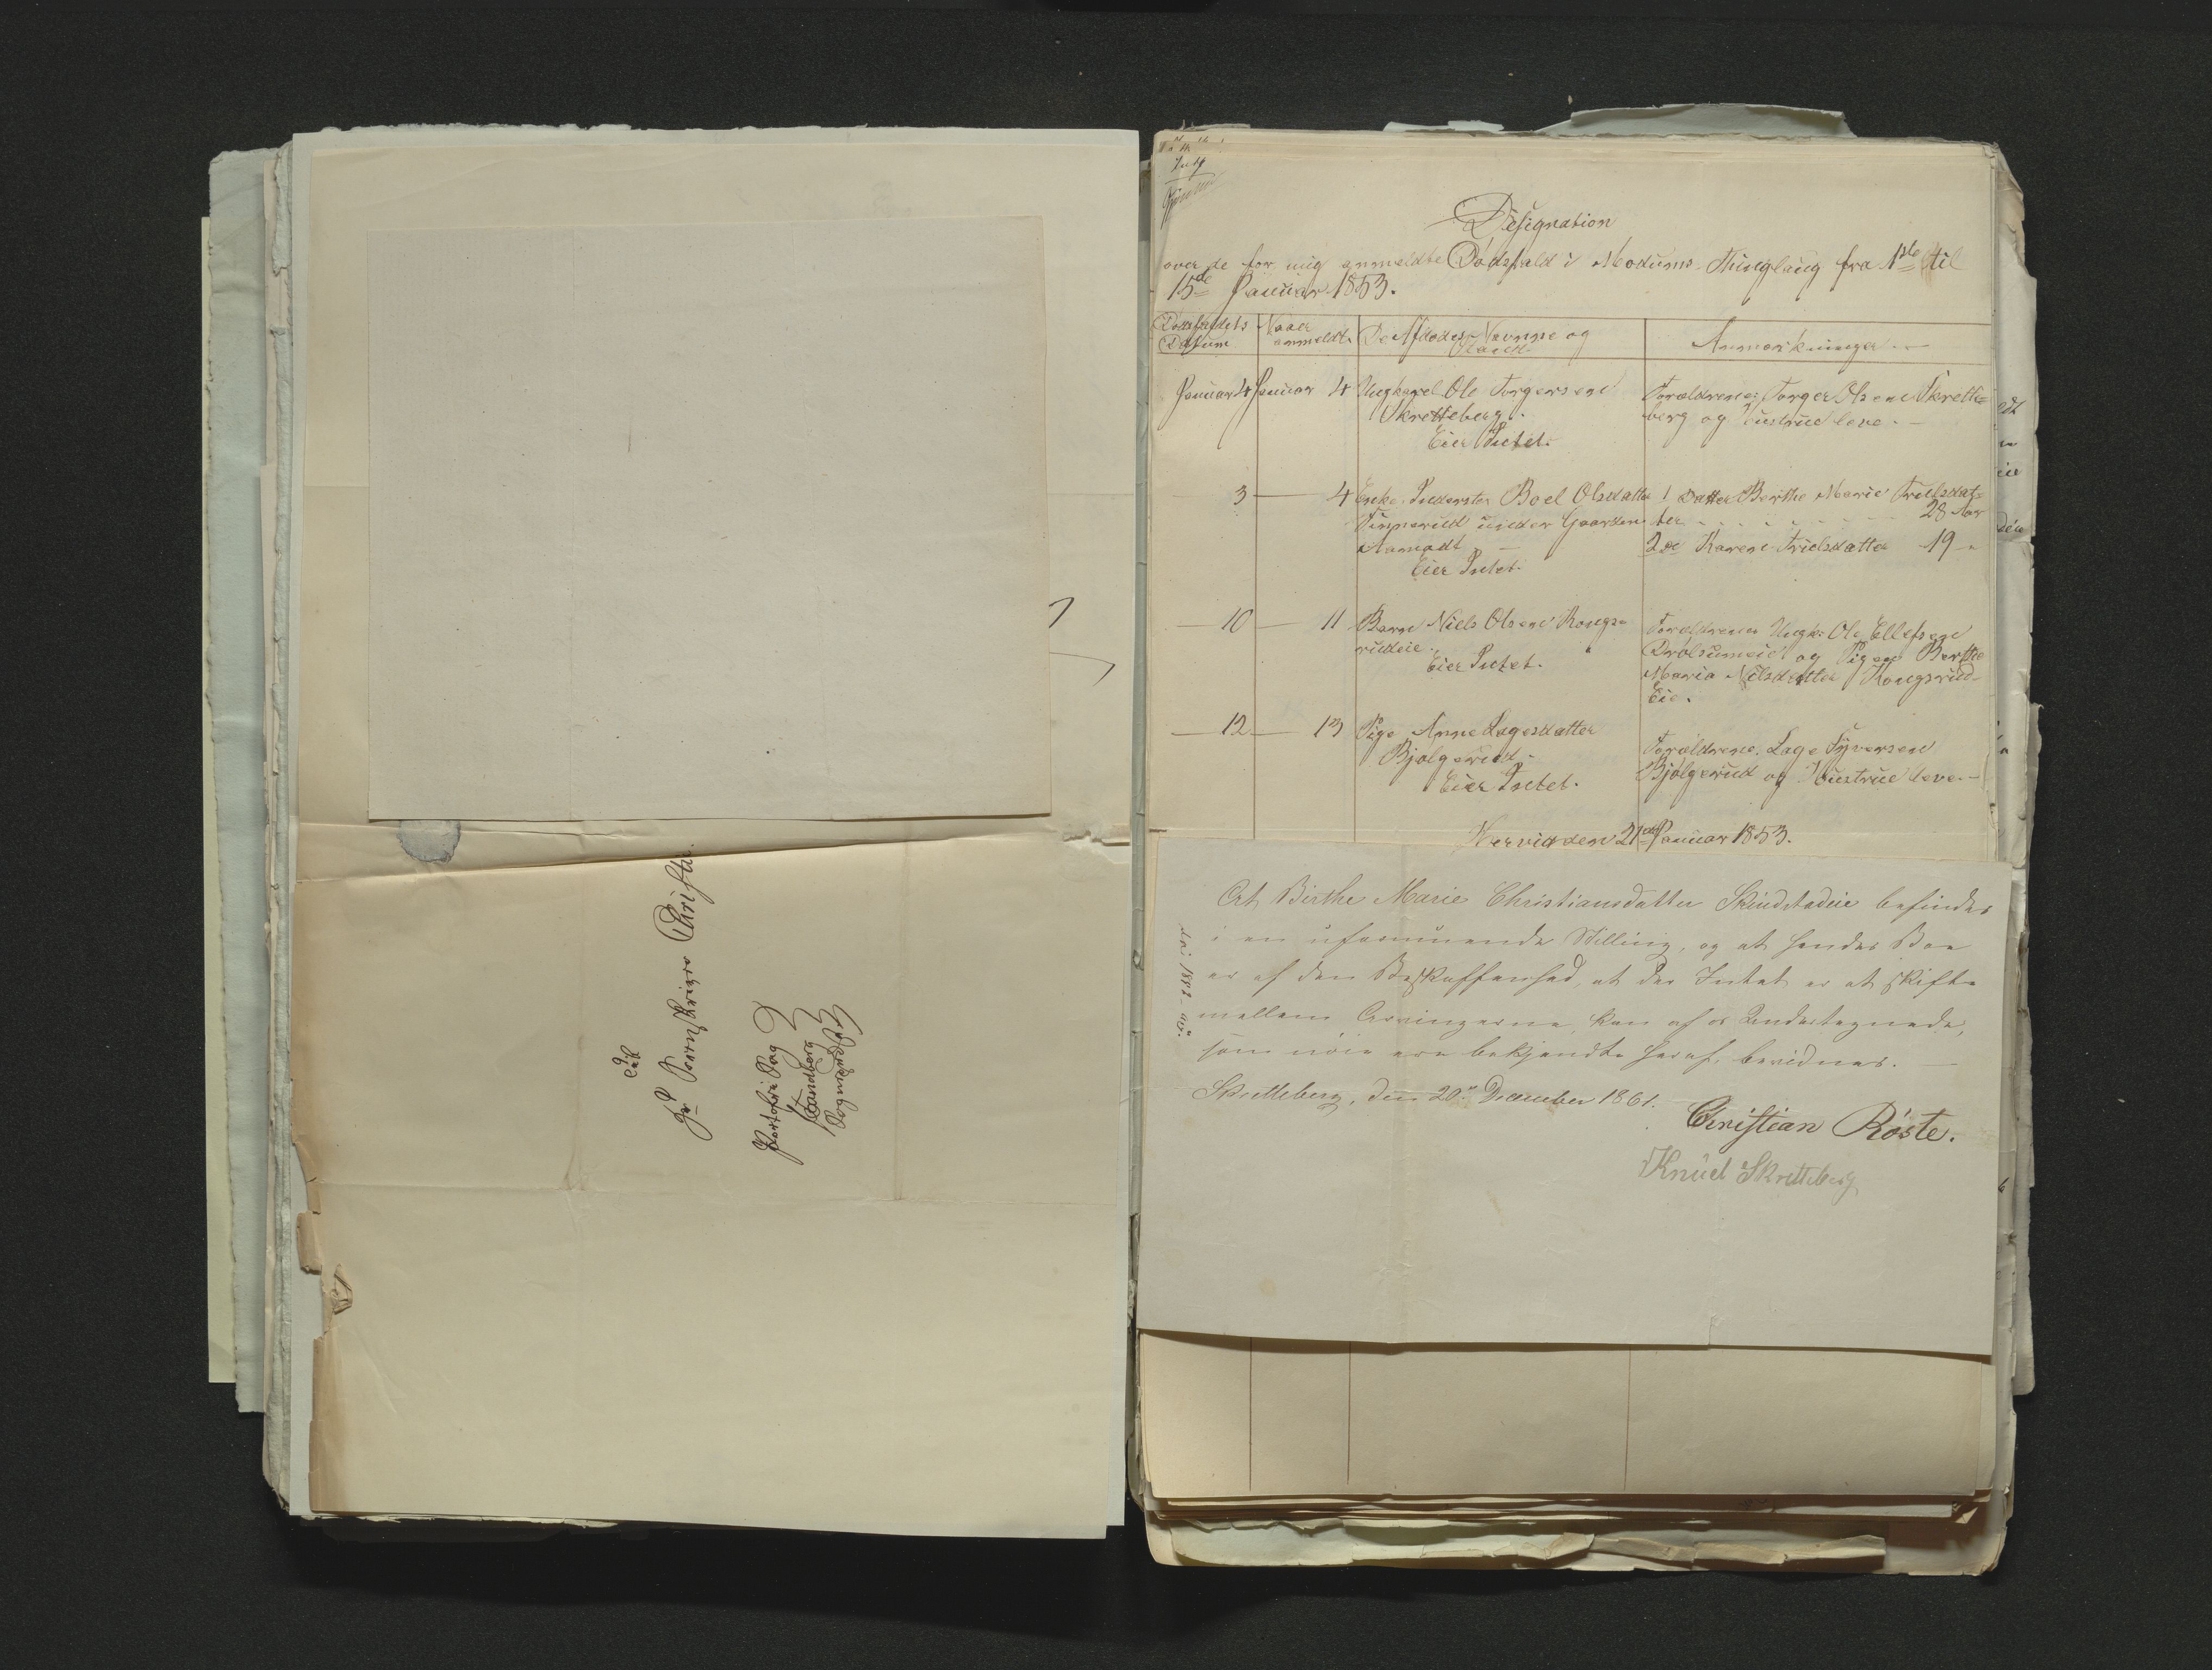 Til
Hr Sorenskriver Christie.
Portofri Sag
Strandberg
Designation
over de for mig anmeldte Dødsfald i Modums Thinglaug fra 1ste til
15de Januar 1853.
Dødsfaldets Datum
Naar anmeldt
De Afdødes Navne og Stand
Anmærkninger
Januar 4 Januar 4 Ungkarl Ole Torgersen
Skretteberg.
Eier Intet.
Forældrene: Torger Olsen Skrette=
berg og Hustrue leve.
3 — 4 Enke Inderste Boel Olsdatter
under Gaarden
Aamodt
Eier Intet.
1 Datter Berthe Marie Trulsdat=
ter 28 Aar
2de Karen Trulsdatter 19 "
— 10 — 11 Barn Niels Olsen Kongs=
rudeie.
Eier Intet.
Forældrene Ungk: Ole Ellefsen
Drolsumeie og Pigen Berthe
Maria Nilsdatter Kongsrud-
Eie.
— 12 — 13 Pige Anne Lagesdatter
Bjølgerud.
Eier Intet.
Forældrene: Lage Syversen
Bjølgerud og Hustrue leve.
den 21de Januar 1853.
At Birthe Marie Christiansdatter Skindstadeie befinder
i en uformuende Stilling, og at hendes Boe
er af den Beskaffenhed, at der Intet er at skifte
mellem Arvingerne, kan af os Undertegnede,
som nøie ere bekjendte heraf, bevidnes.
Skretteberg, den 20de December 1861.
Christian Röste.
Knud Skretteberg